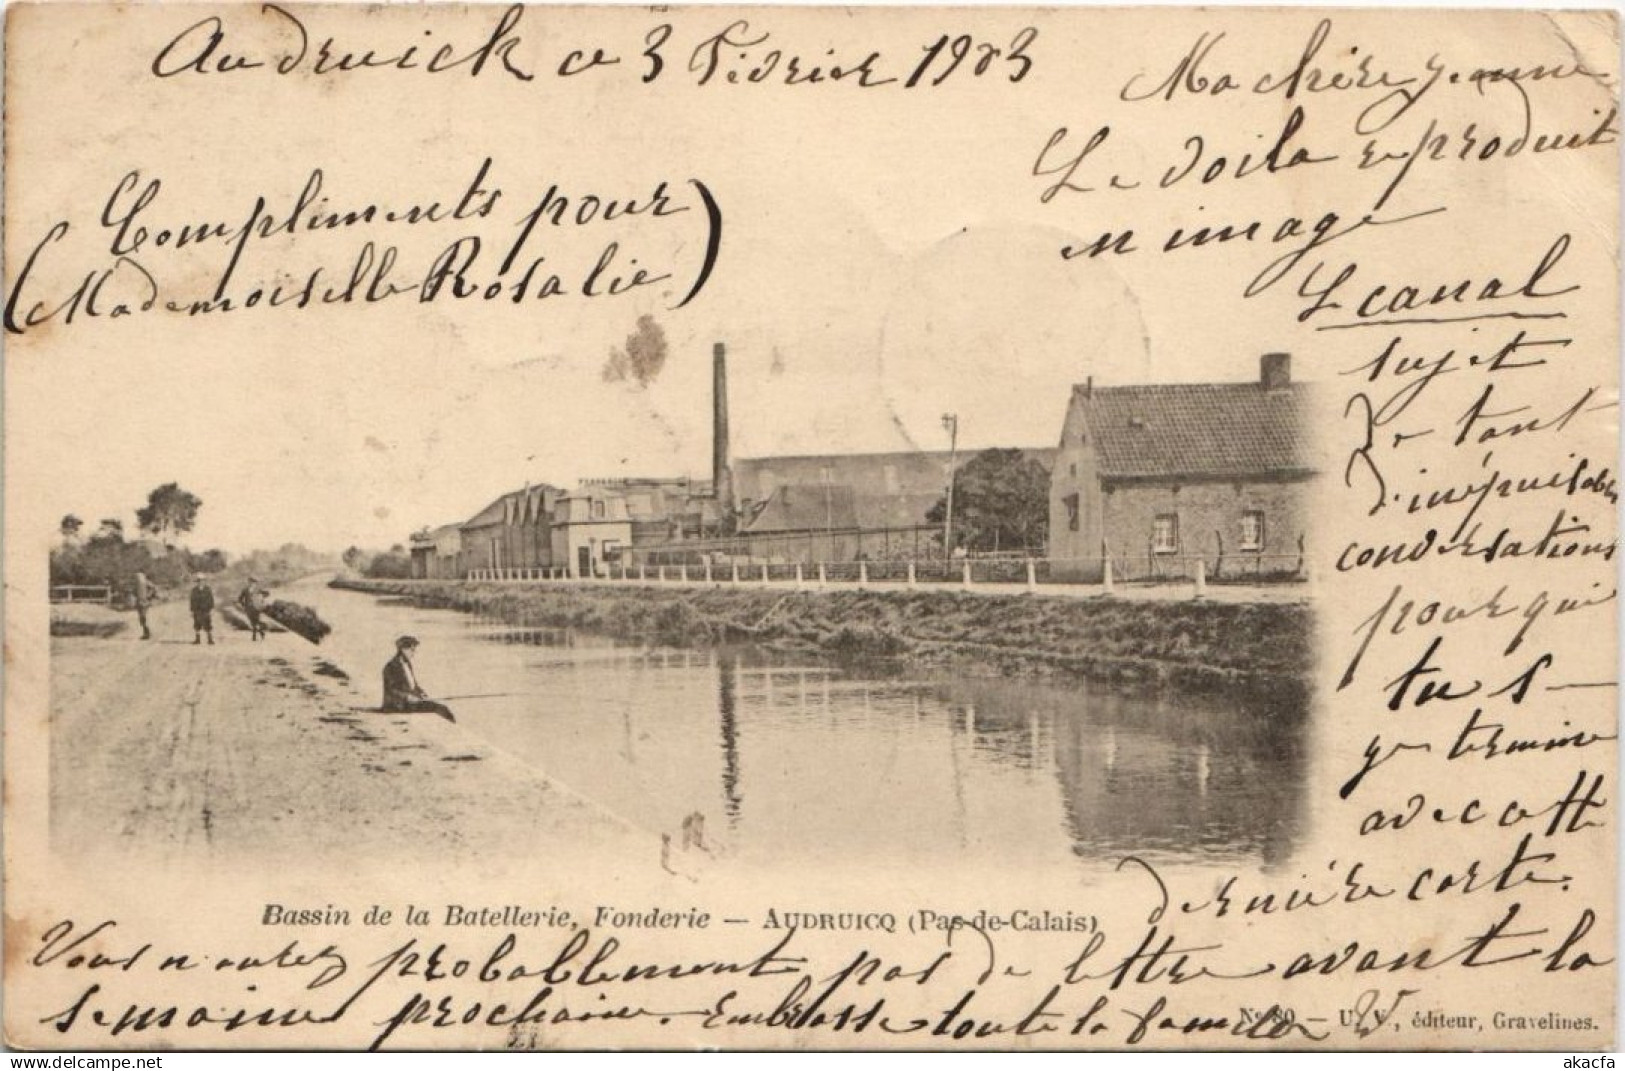 Audruick ce 3 Février 1903
Ma chère Jeanne
Le voila reproduit
en image
Le canal
sujet
de tant
d'inépuisables
conversations
pour qui
tu s—
je termine
avec cette
dernière carte.
Compliments pour
(Mademoiselle Rosalie)
Bassin de la Batellerie, Fonderie — AUDRUICQ (Pas-de-Calais)
Vous n'aurez probablement pas de lettre avant la
semaine prochaine. Embrasse toute la famille
No 80 — U. V., éditeur, Gravelines.
akacfa